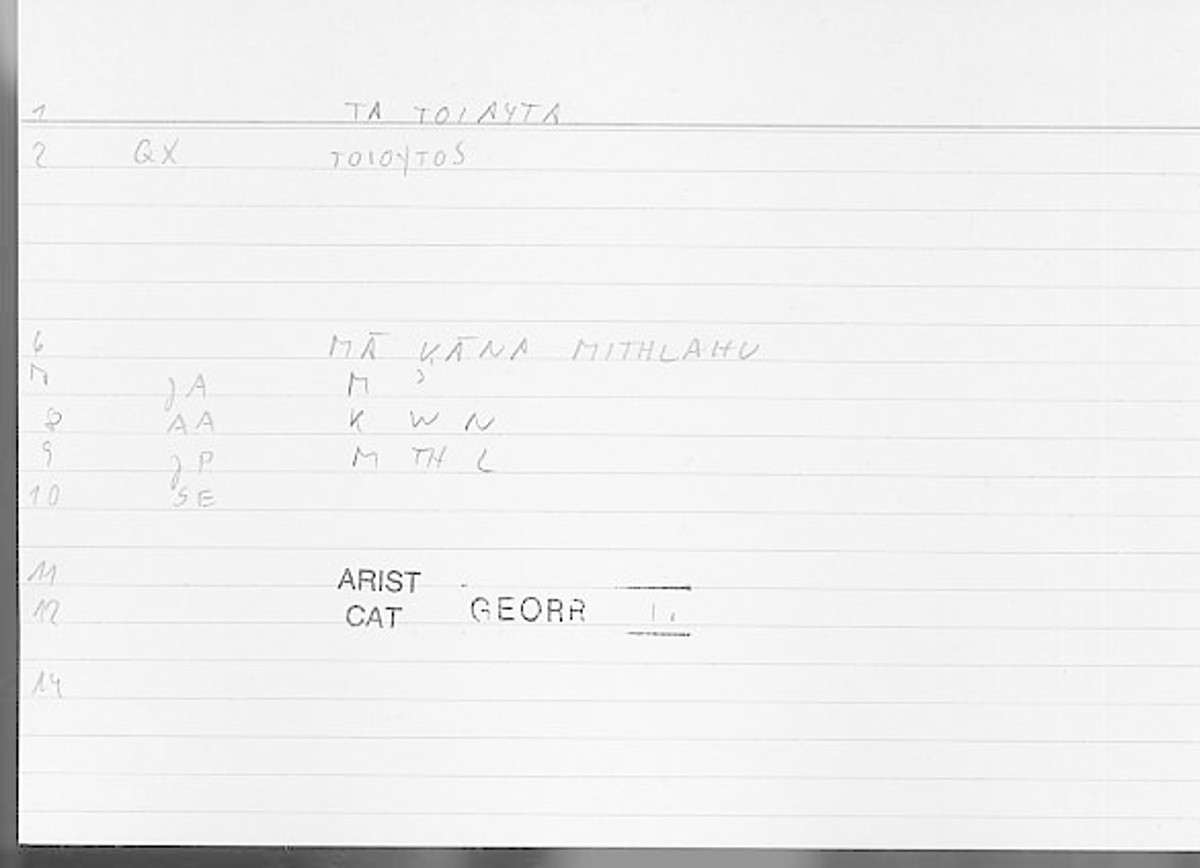 1 TA TOIAYTA
2 QX TOIOYTOS
6 MĀ KĀNA MITHLAHU
7 JA M ʾ
8 AA K W N
9 JP M TH L
10 SE
11 ARIST
12 CAT GEORR
14